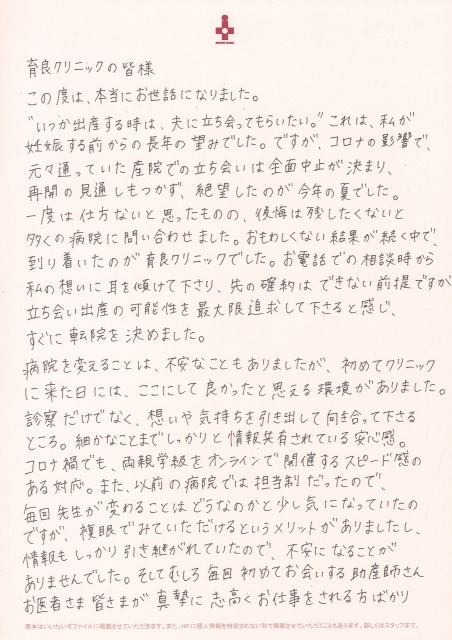 育良クリニックの皆様
この度は、本当にお世話になりました。
"いつか出産する時は、夫に立ち会ってもらいたい。"これは、私が
妊娠する前からの長年の望みでした。ですが、コロナの影響で、
元々通っていた産院での立ち会いは全面中止が決まり、
再開の見通しもつかず、絶望したのが今年の夏でした。
一度は仕方ないと思ったものの、後悔は残したくないと
多くの病院に問い合わせました。おもわしくない結果が続く中で、
到り着いたのが育良クリニックでした。お電話での相談時から
私の想いに耳を傾けて下さり、先の確約はできない前提ですが
立ち会い出産の可能性を最大限追求して下さると感じ、
すぐに転院を決めました。
病院を変えることは、不安なこともありましたが、初めてクリニック
に来た日には、ここにして良かったと思える環境がありました。
診察だけでなく、想いや気持ちを引き出して向き合って下さる
ところ。細かなことまでしっかりと情報共有されている安心感。
コロナ禍でも、両親学級をオンラインで開催するスピード感の
ある対応。また、以前の病院では担当制だったので、
毎回先生が変わることはどうなのかと少し気になっていたの
ですが、複眼でみていただけるというメリットがありましたし、
情報もしっかり引き継がれていたので、不安になることが
ありませんでした。そしてむしろ毎回初めてお会いする助産師さん
お医者さま皆さまが真摯に志高くお仕事をされる方ばかり
原本はいいたいぞファイルに掲載させていただきます。また、HPに個人情報を特定されない形で掲載させていただくこともあります。詳しくはスタッフまで。